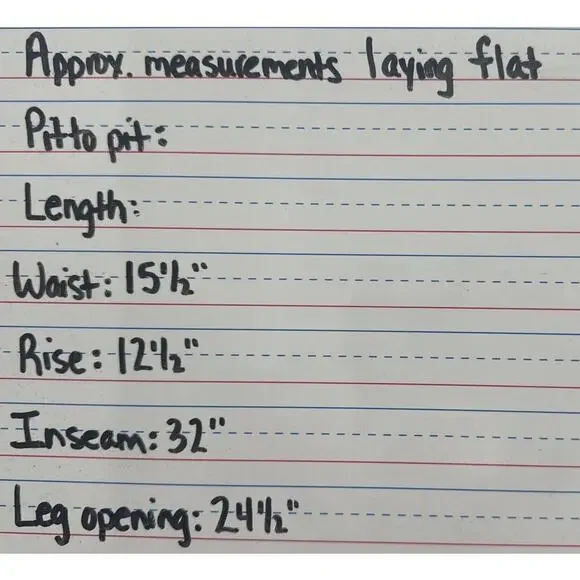 Approx. measurements laying flat
Pit to pit:
Length:
Waist: 15½"
Rise: 12½"
Inseam: 32"
Leg opening: 24½"